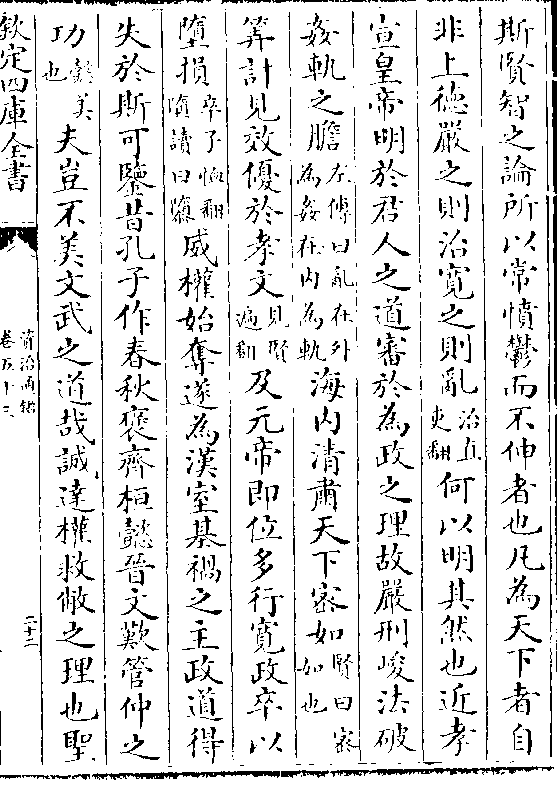 斯賢智之論所以常憤鬱而不伸者也凡為天下者自
非上徳嚴之則治寛之則亂治直吏翻何以明其然也近孝
宣皇帝明於君人之道審於為政之理故嚴刑峻法破
姦軌之膽左傳曰亂在外為姦在内為軌海内清肅天下宻如賢曰宻如也
筭計見效優於孝文見賢遍翻及元帝即位多行寛政卒以
墮損卒子恤翻墮讀曰隳威權始奪遂為漢室基禍之主政道得
失於斯可鑒昔孔子作春秋襃齊桓懿晉文歎管仲之
功懿美也夫豈不美文武之道哉誠達權救敝之理也聖
欽定四庫全書
資治通鑑
卷五十三
二十二